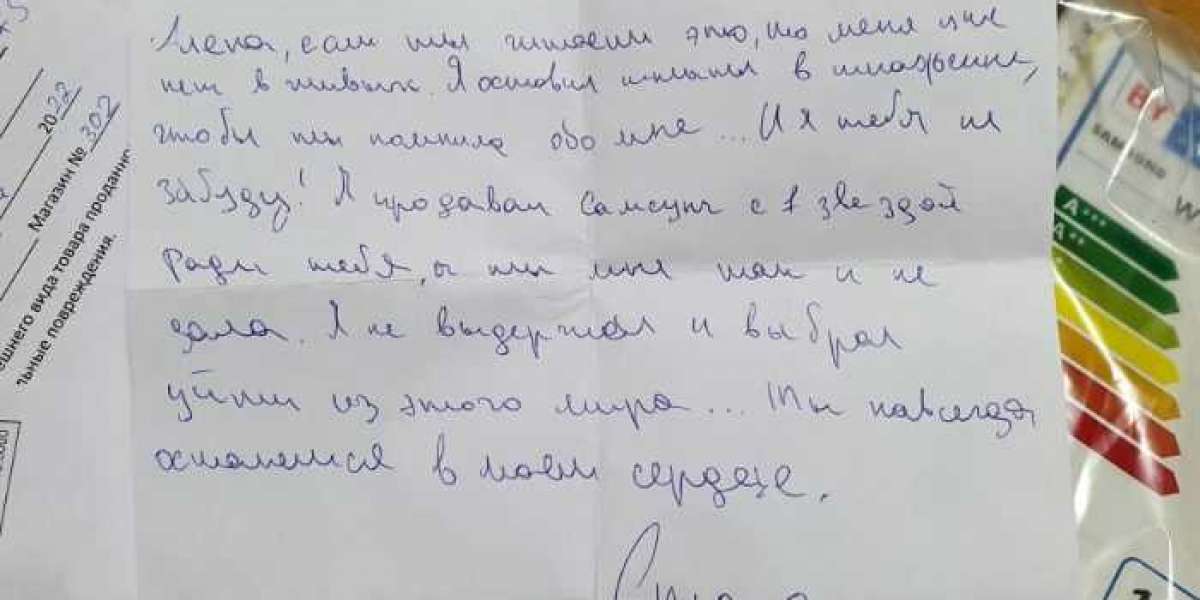 Алена, если ты читаешь это, то меня уже
нет в живых. Я оставил в
чтобы ты помнила обо мне... И я тебя не
забуду! Я продавал Самсунг с 1 звездой
ради тебя, а ты мне так и не
дала. Я не выдержал и выбрал
уйти из этого мира... Ты навсегда
останешься в моем сердце.
2022
Магазин № 302
ешнего вида товара проданно
льные повреждения.
BY
SAMSUNG
A+++
A++